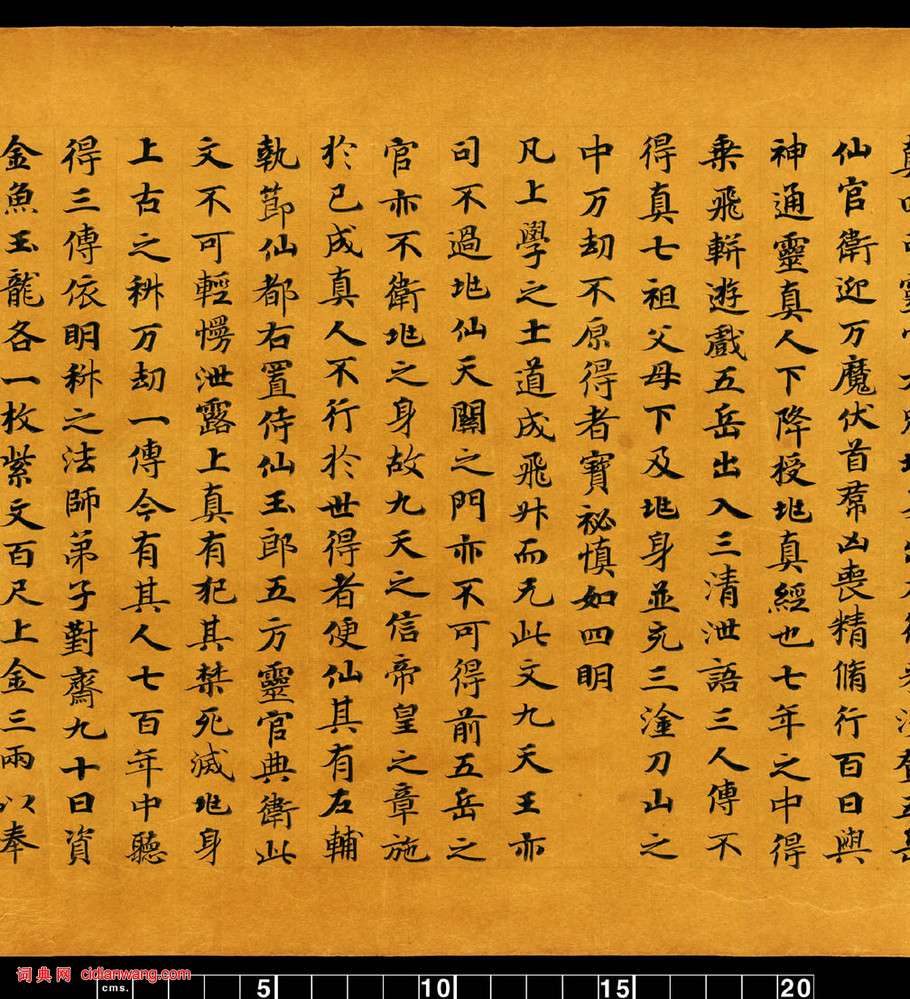 仙官衛迎万魔伏首群凶喪精脩行百日與
神通靈真人下降授兆真經也七年之中得
乗飛軿遊戲五岳出入三清泄語三人傳不
得真七祖父母下及兆身並充三塗刀山之
中万劫不原得者寶祕慎如四明
凡上學之士道成飛升而无此文九天王亦
司不過地仙天關之門亦不可得前五岳之
官亦不衛兆之身故九天之信帝皇之章施
於已成真人不行於世得者便仙其有左輔
執節仙都右置侍仙玉郎五方靈官典衛此
文不可輕慢泄露上真有犯其禁死滅兆身
上古之科万劫一傳今有其人七百年中聽
得三傳依明科之法師弟子對齋九十日資
金魚玉龍各一枚紫文百尺上金三兩以奉
词典网 cidianwang.com
cms. 5 10 15 20